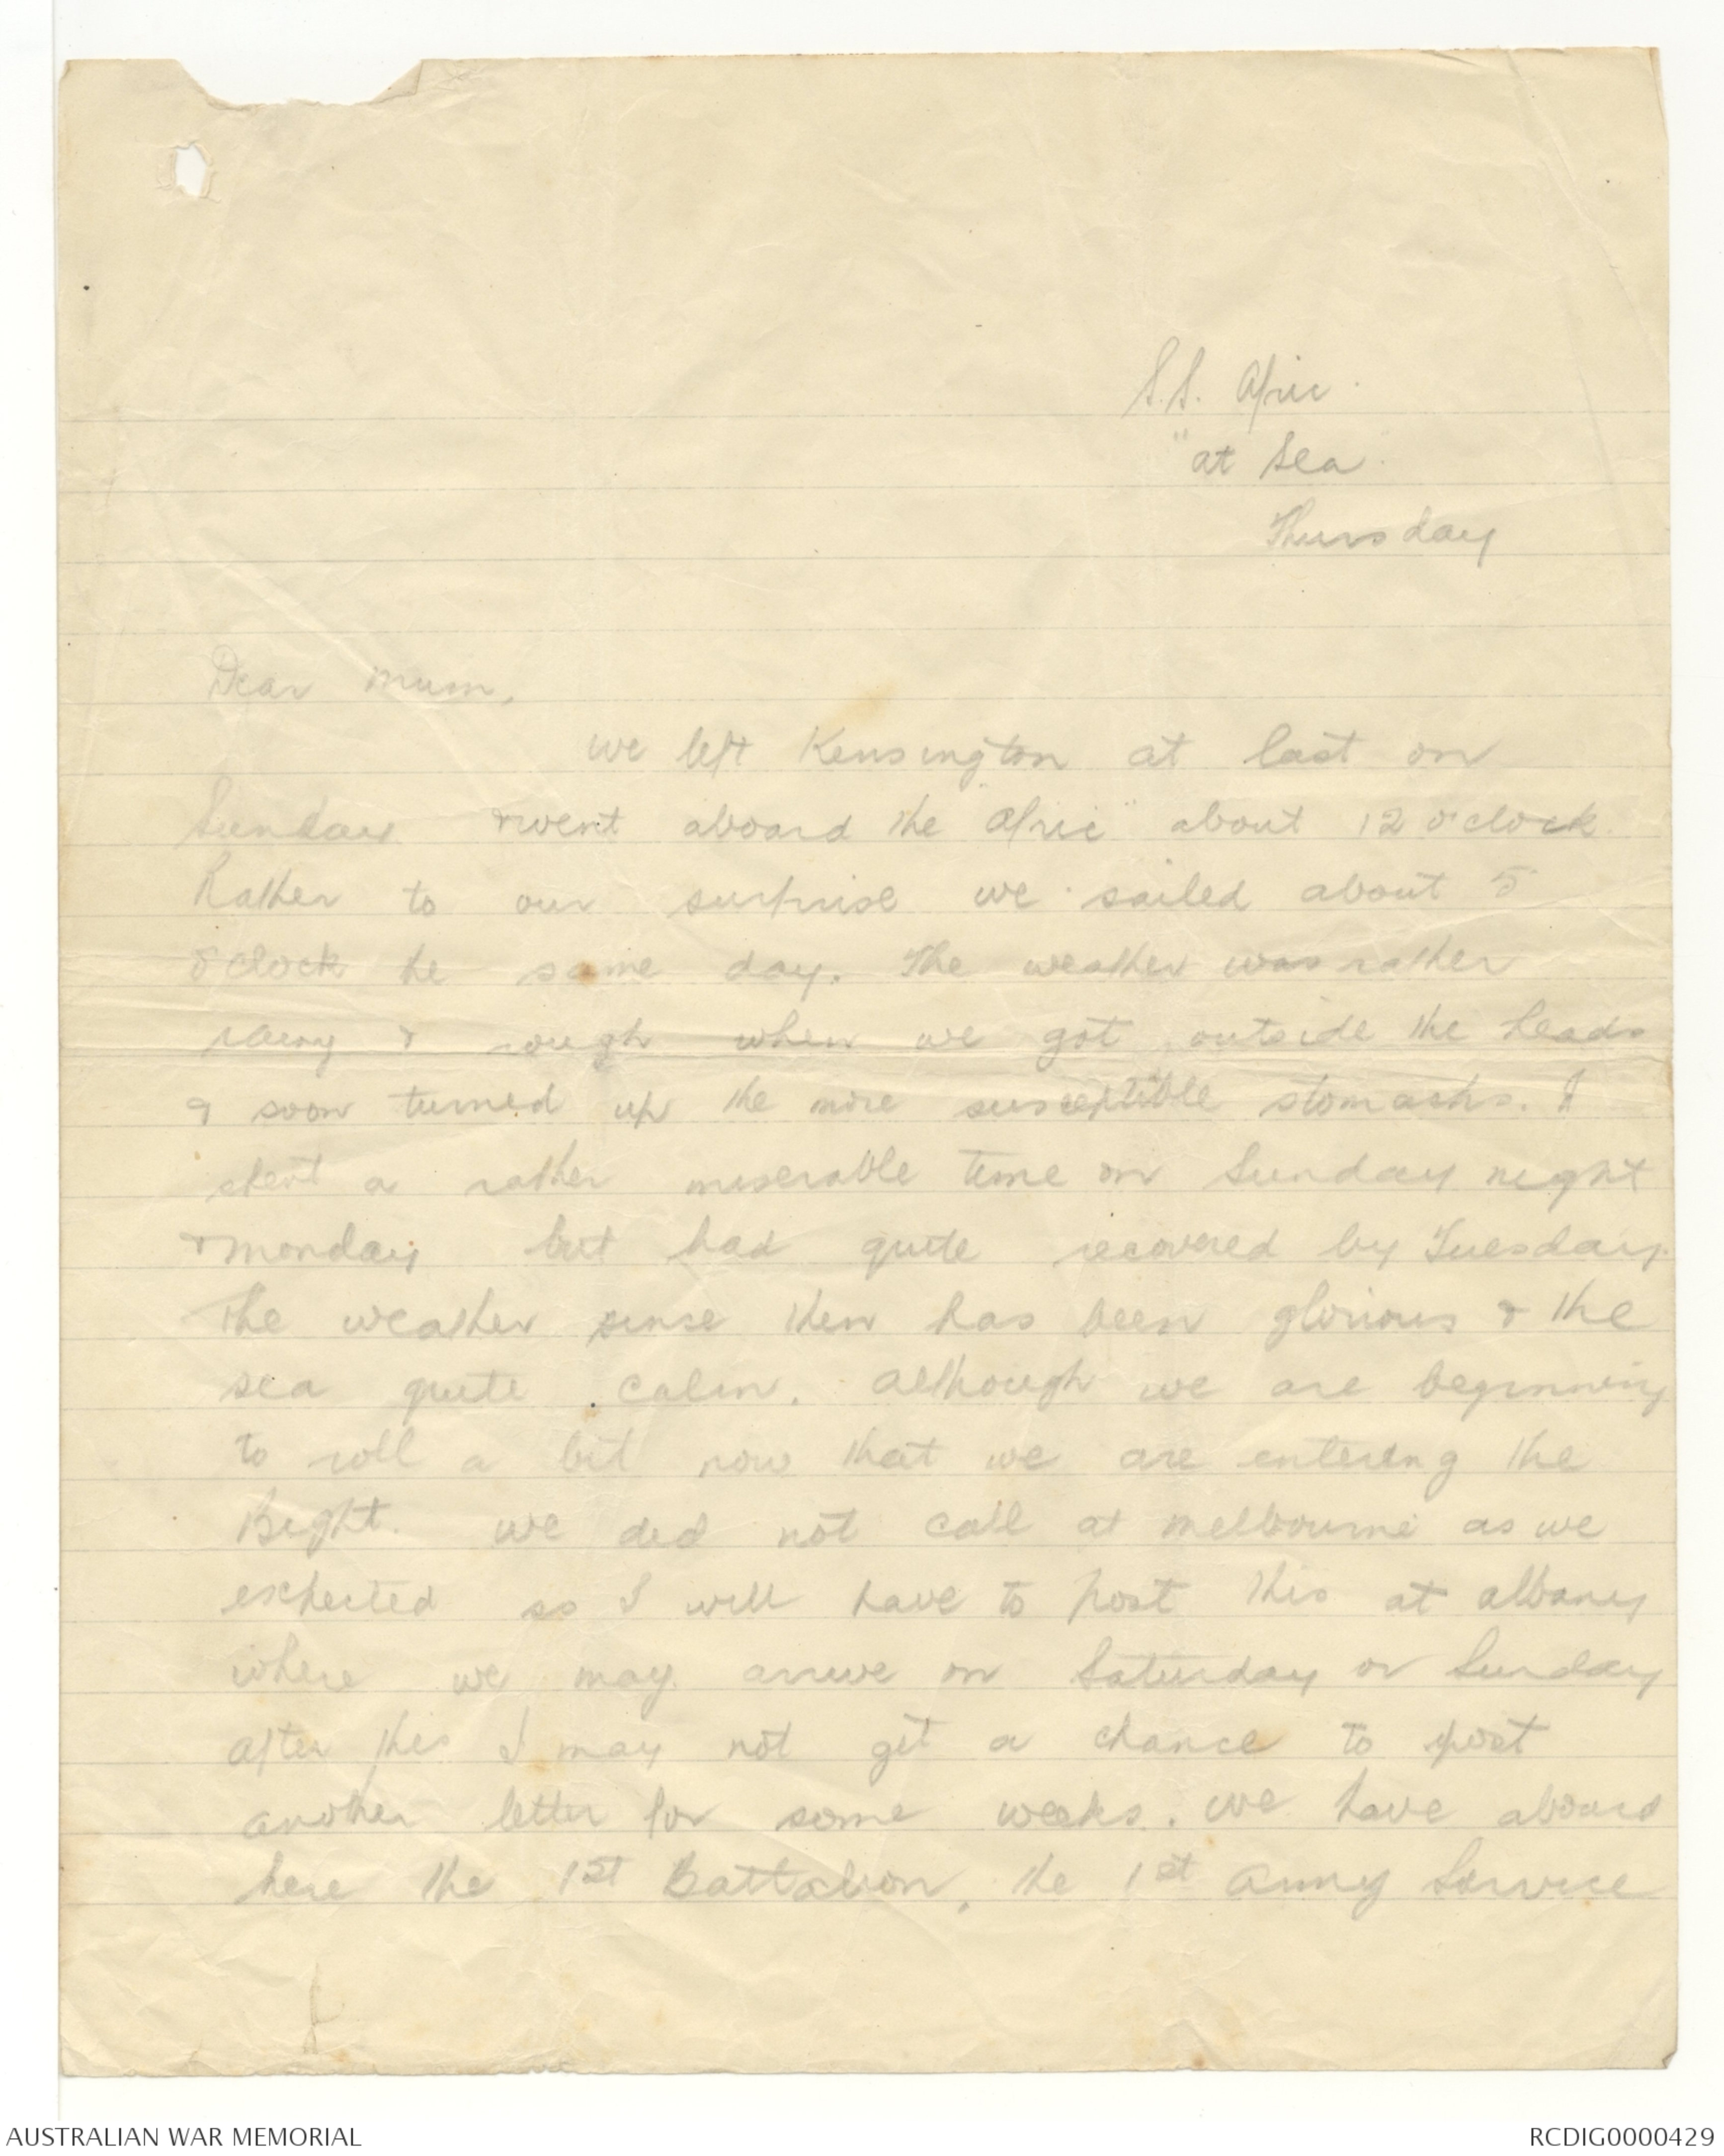 S.S. Afric.
"at Sea.
Thursday
Dear Mum,
We left Kensington at last on
Sunday & went aboard the "Afric" about 12 o'clock.
Rather to our surprise we sailed about 5
o'clock he same day. The weather was rather
rainy & rough when we got outside the heads
& soon turned up the more susceptible stomachs. I
spent a rather miserable time on Sunday night
& Monday but had quite recovered by Tuesday.
The weather sinse then has been glorious & the
sea quite calm. Although we are beginning
to roll a bit now that we are entering the
Bight. We did not call at Melbourne as we
expected so I will have to post this at Albany
where we may arrive on Saturday or Sunday
after this I may not get a chance to post
another letter for some weeks. We have aboard
here the 1st Battalion, the 1st Army Service
AUSTRALIAN WAR MEMORIAL
RCDIG0000429